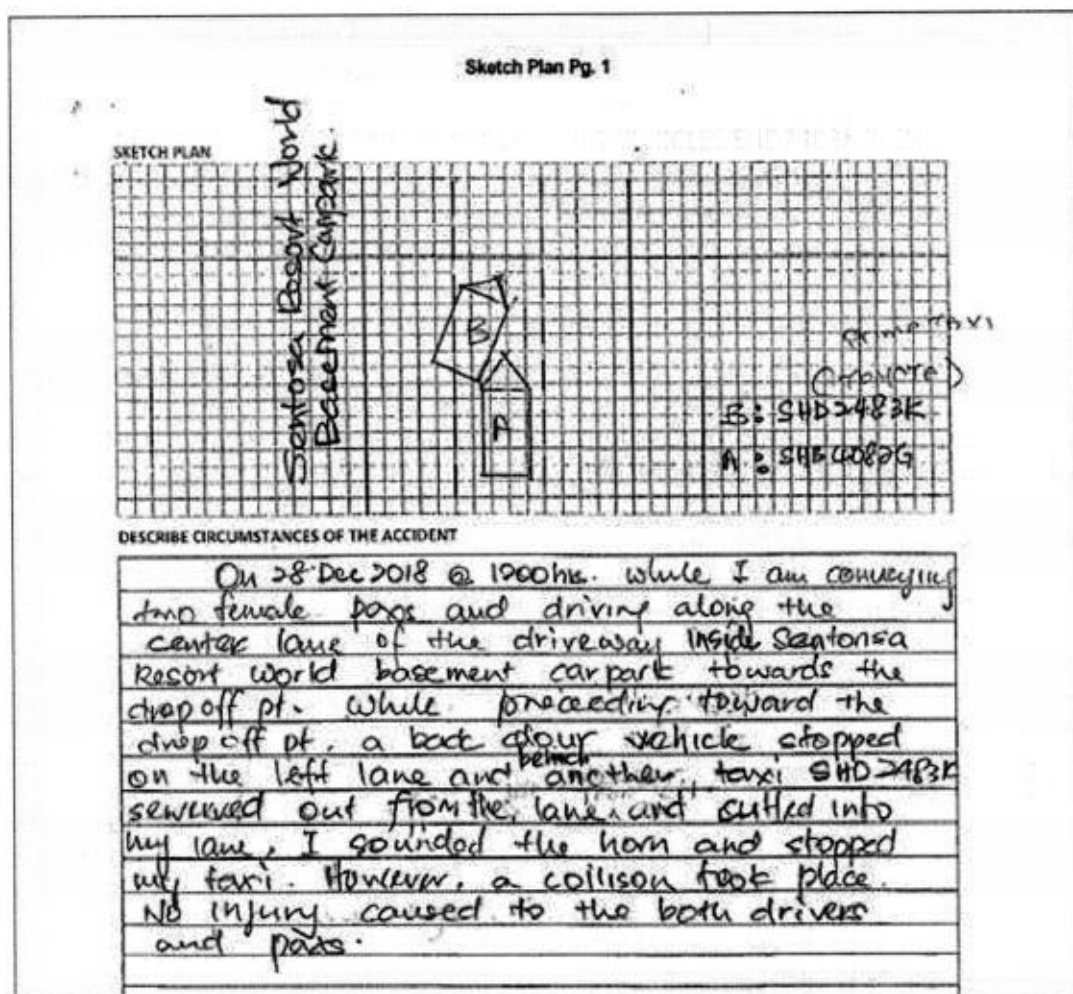 Sketch Plan Pg. 1
SKETCH PLAN
Sentosa Resort World
Basement Carpark
B
A
prime taxi
B: SHD2483K
A:
DESCRIBE CIRCUMSTANCES OF THE ACCIDENT
On 28 Dec 2018 @ 1900hrs. while I am conveying
two female paxs and driving along the
center lane of the driveway inside Sentonsa
Resort World basement carpark towards the
drop off pt. while proceeding toward the
drop off pt. a colour vehicle stopped
behind
on the left lane and another taxi SHD2483K
serwved out from the lane and cutted into
my lane, I sounded the horn and stopped
my taxi. However, a collison took place.
No injury caused to the both drivers
and paxs.